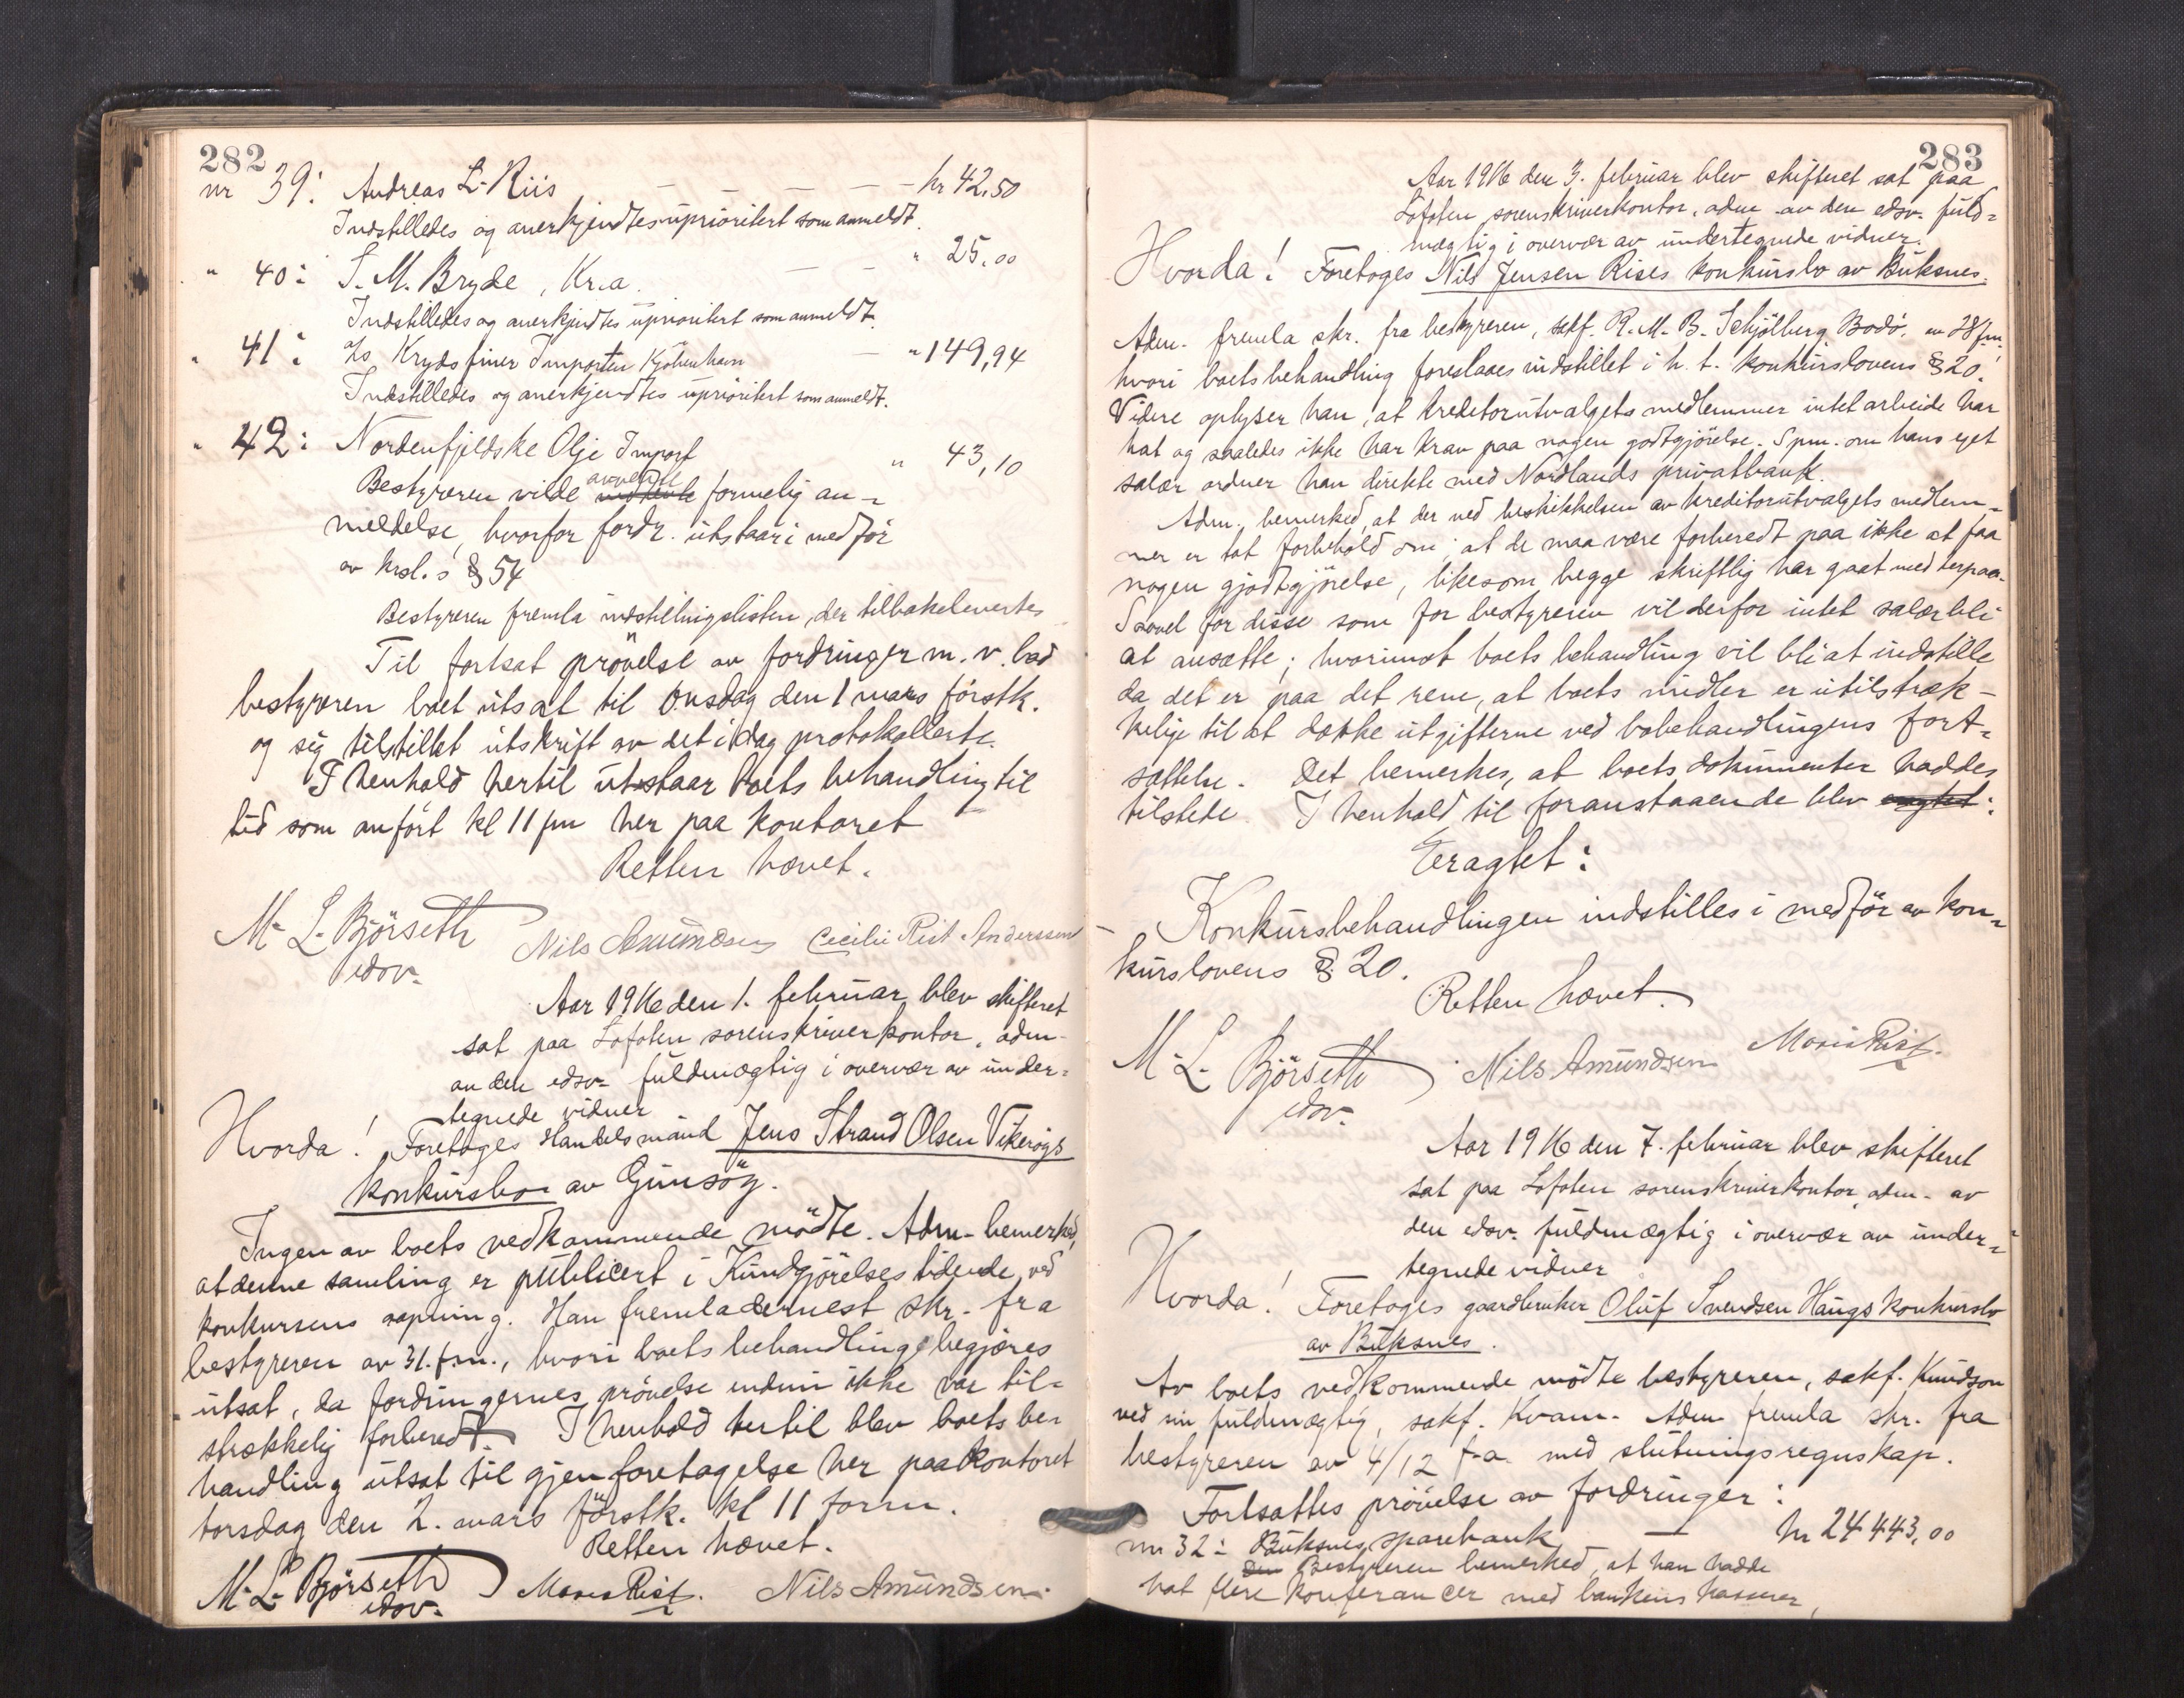 282
nr 39: Andreas L. Riis — — — — kr 42,50
Indstilledes og anerkjendtes uprioritert som anmeldt.
" 40: I. M. Bryde, Kr.a. — — " 25,00
Indstilledes og anerkjendtes uprioritert som anmeldt.
" 41: As. Krydsfiner Importen Kjøbenhavn — " 149,94
Indstilledes og anerkjendtes uprioritert som anmeldt.
" 42: Nordenfjeldske Olje Import " 43,10
Bestyreren vilde avvente formelig an-
meldelse, hvorfor fordr. utstaar i medför
av krsl.s § 54
Bestyreren fremla indstillingslisten, der tilbakelevertes
Til fortsat prövelse av fordringer m. v. bad
bestyreren boet utsat til Onsdag den 1 mars förstk.
og sig tilstillet utskrift av det idag protokollerte.
I henhold hertil utstaar boets behandling til
tid som anfört kl 11 fm her paa kontoret
Retten hævet.
M. L. Björseth Nils Amundsen Cecilie Rist Anderssen
edsv.
Aar 1916 den 1. februar blev skifteret
sat paa Lofoten sorenskriverkontor, adm.
av den edsv. fuldmægtig i overvær av under-
tegnede vidner
Hvorda! Foretoges Handelsmand Jens Strand Olsen Vikeröys
konkursbo av Gimsöy.
Ingen av boets vedkommende mödte. Adm. bemerked,
at denne samling er publicert i Kundgjörelsestidende ved
konkursens aapning. Han fremla dernest skr. fra
bestyreren av 31. f.m., hvori boets behandling begjæres
utsat, da fordringernes prövelse endnu ikke var til-
strækkelig forberedt. I henhold hertil blev boets be-
handling utsat til gjenforetagelse her paa kontoret
torsdag den 2. mars förstk. kl 11 form.
Retten hævet.
M. L. Björseth Maris Rist. Nils Amundsen.
edsv.
283
Aar 1916 den 3. februar blev skifteret sat paa
Lofoten sorenskriverkontor, adm. av den edsv. fuld-
mægtig i overvær av undertegnede vidner.
Hvorda! Foretoges Nils Jensen Rises konkursbo av Buksnes.
Adm. fremla skr. fra bestyreren, sakf. R. M. B. Schjölberg, Bodö, av 28 f.m.
hvori boets behandling foreslaaes indstillet i h. t. konkurslovens § 20.
Videre oplyser han, at kreditorutvalgets medlemmer intet arbeide har
hat og saaledes ikke har krav paa nogen godtgjörelse. Spm. om hans eget
salær ordner han direkte med Nordlands privatbank.
Adm. bemerked, at der ved beskikkelsen av kreditorutvalgets medlem-
mer er tat forbehold om, at de maa være forberedt paa ikke at faa
nogen gjodtgjörelse, likesom begge skriftlig har gaat med herpaa.
Saavel for disse som for bestyreren vil derfor intet salær bli
at ansætte; hvorimot boets behandling vil bli at indstille
da det er paa det rene, at boets midler er utilstræk-
kelige til at dække utgifterne ved bobehandlingens fort-
sættelse. Det bemerkes, at boets dokumenter haddes
tilstede. I henhold til foranstaaende blev eragtet:
Eragtet:
Konkursbehandlingen indstilles i medför av kon-
kurslovens § 20.
Retten hævet.
M. L. Björseth Nils Amundsen Maris Rist.
edsv.
Aar 1916 den 7. februar blev skifteret
sat paa Lofoten sorenskriverkontor, adm. av
den edsv. fuldmægtig i overvær av under-
tegnede vidner
Hvorda! Foretoges gaardbruker Oluf Svendsen Haugs konkursbo
av Buksnes.
Av boets vedkommende mödte bestyreren, sakf. Knudson
ved sin fuldmægtig, sakf. Kvam. Adm. fremla skr. fra
bestyreren av 4/12 f.a. med slutningsregnskap.
Fortsattes prövelse av fordringer:
nr 32: Buksnes sparebank — kr 24443,00
Den Bestyreren bemerked, at han hadde
hat flere konferancer med bankens kasserer,